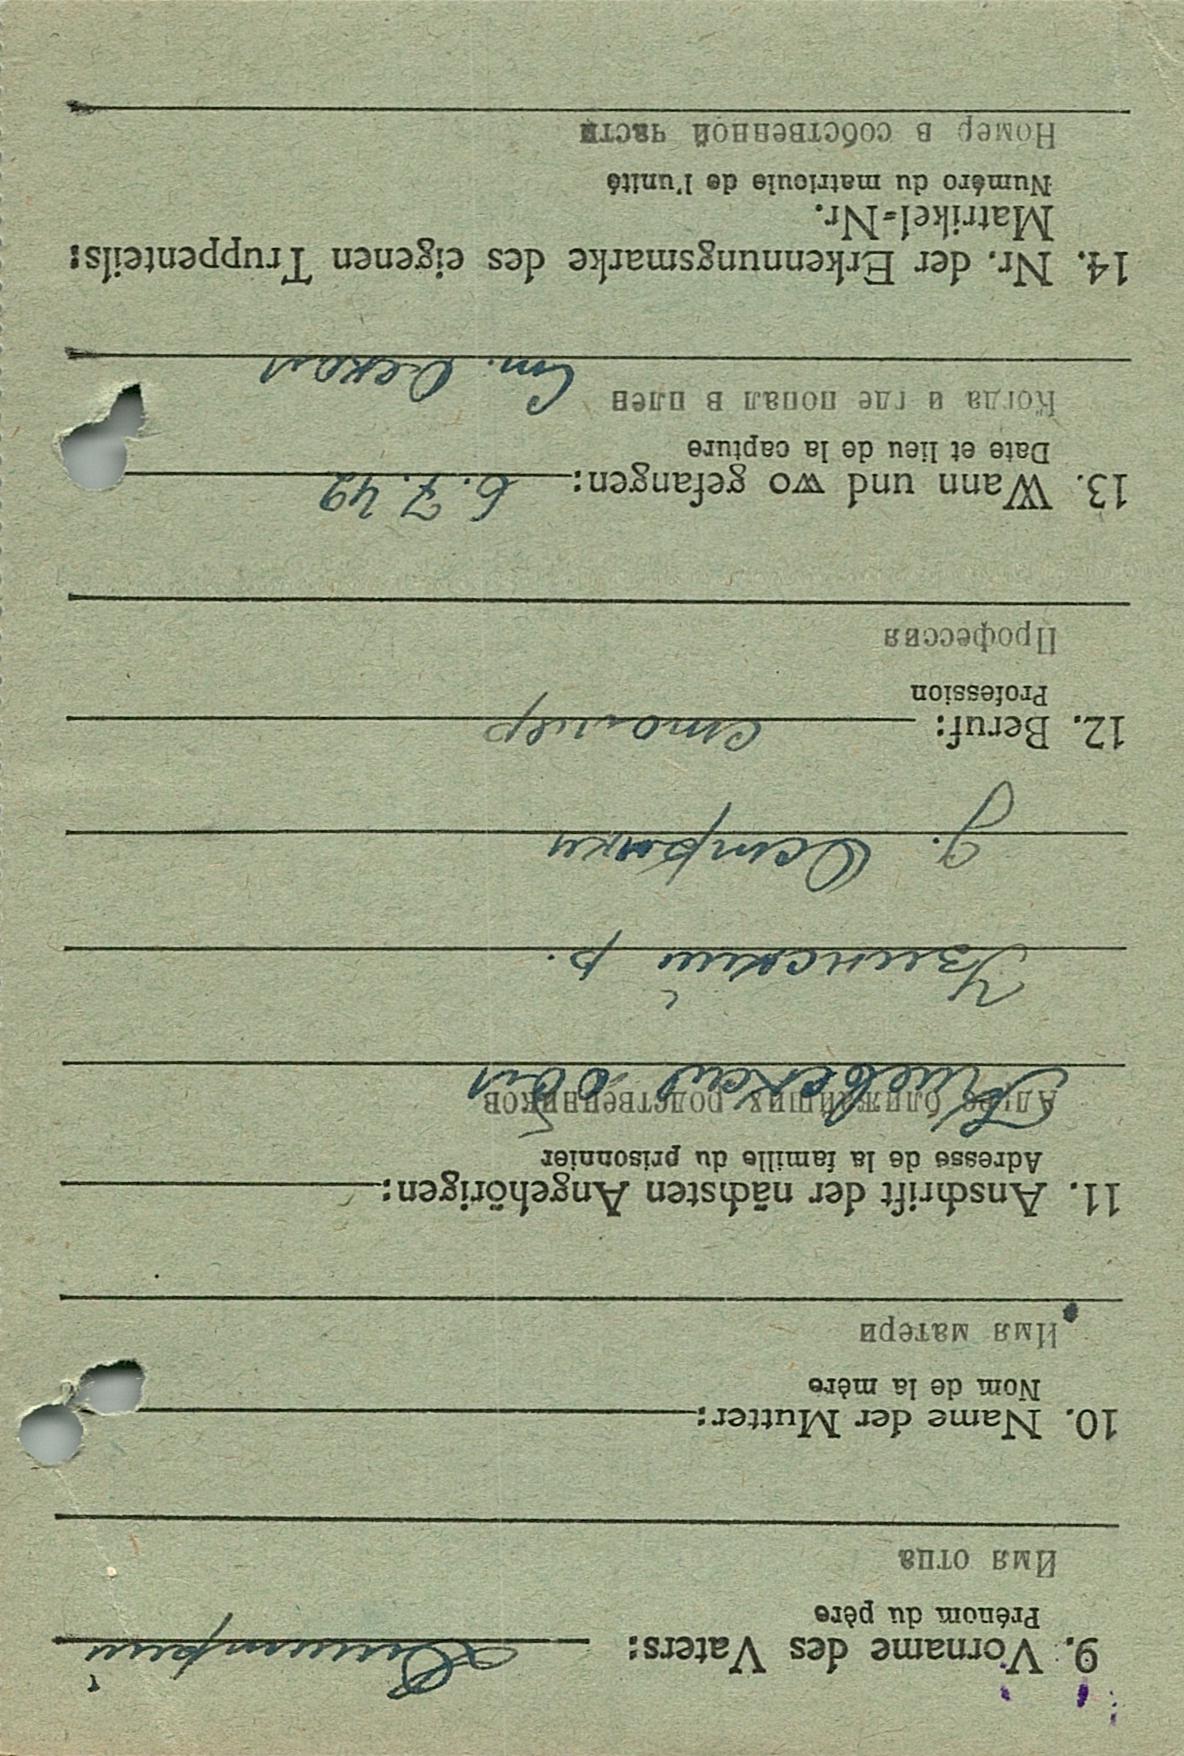 9. Vorname des Vaters: Дмитрий
Prénom du père
Имя отца
10. Name der Mutter:
Nom de la mère
Имя матери
11. Anschrift der nächsten Angehörigen:
Adresse de la famille du prisonnier
Адрес ближайших родственников
Киевская обл
Узинский р.
д. Острики
12. Beruf: столяр
Profession
Профессия
13. Wann und wo gefangen: 6.7.42
Date et lieu de la capture
Когда и где попал в плен
Ст. Оскол
14. Nr. der Erkennungsmarke des eigenen Truppenteils:
Matrikel-Nr.
Numéro du matricule de l'unité
Номер в собственной части